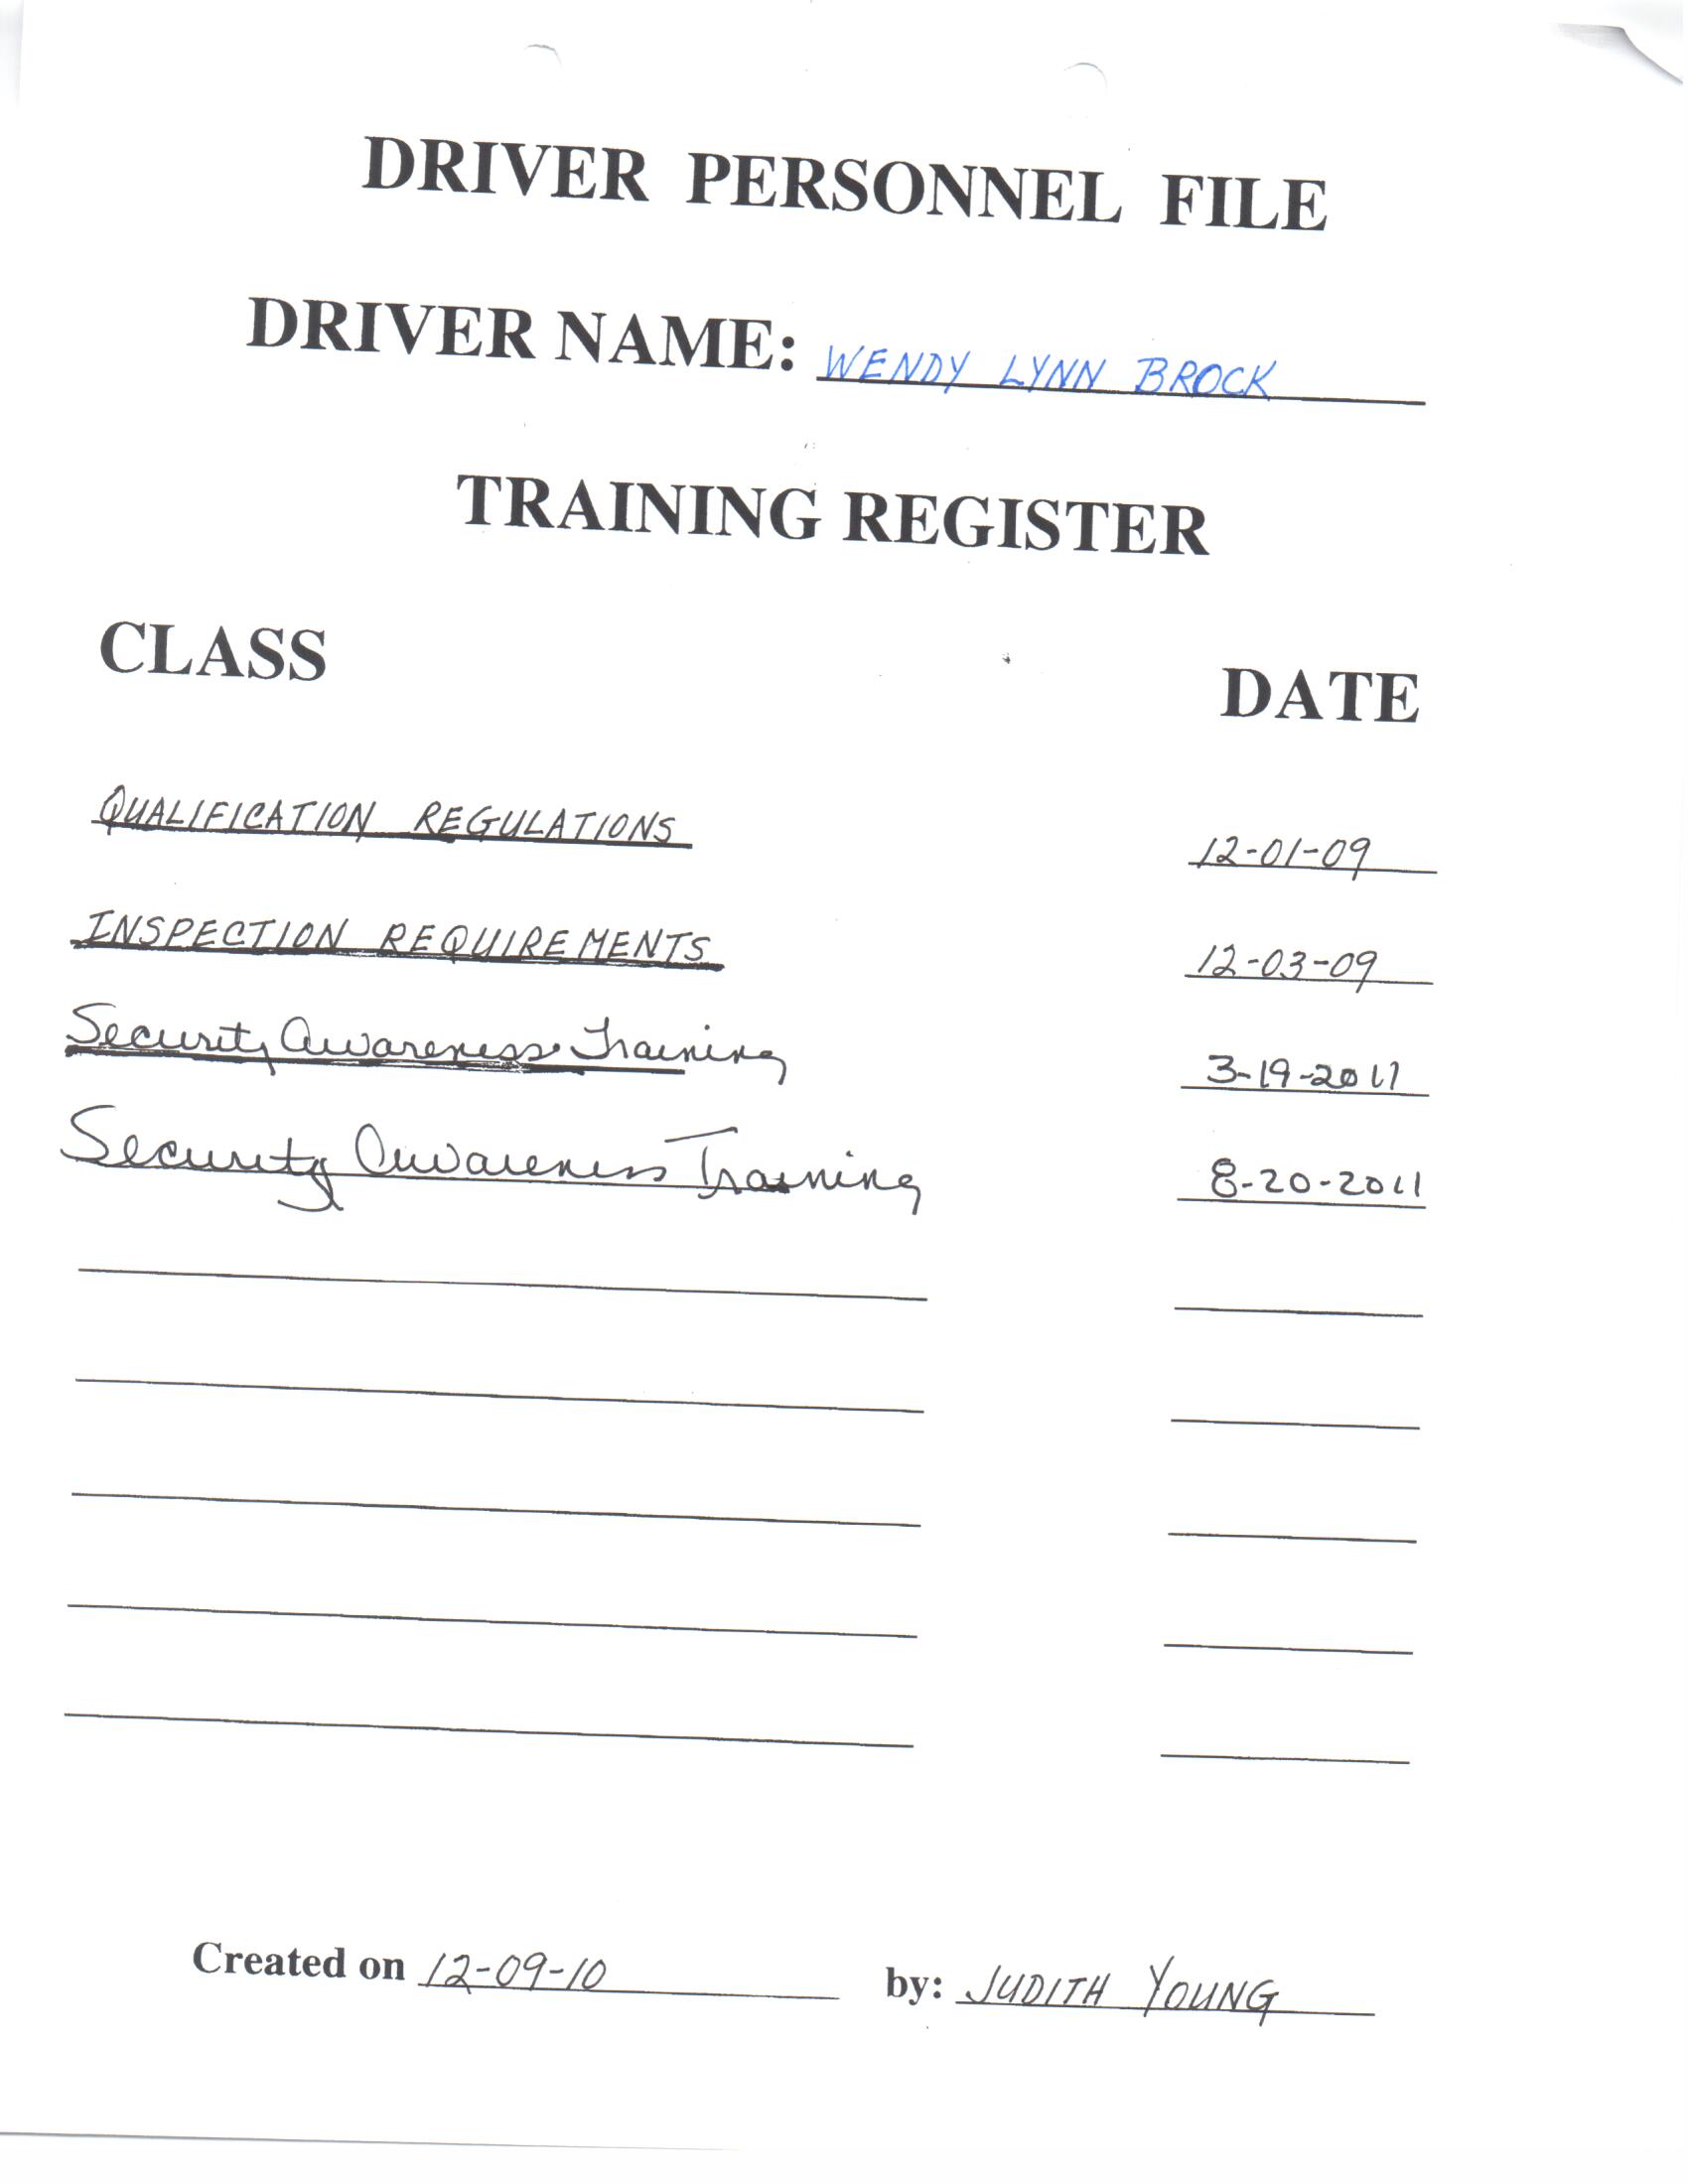 DRIVER PERSONNEL FILE
DRIVER NAME: WENDY LYNN BROCK
TRAINING REGISTER
CLASS DATE
QUALIFICATION REGULATIONS 12-01-09
INSPECTION REQUIREMENTS 12-03-09
Security Awareness Training 3-19-2011
Security Awareness Training 8-20-2011
Created on 12-09-10 by: JUDITH YOUNG